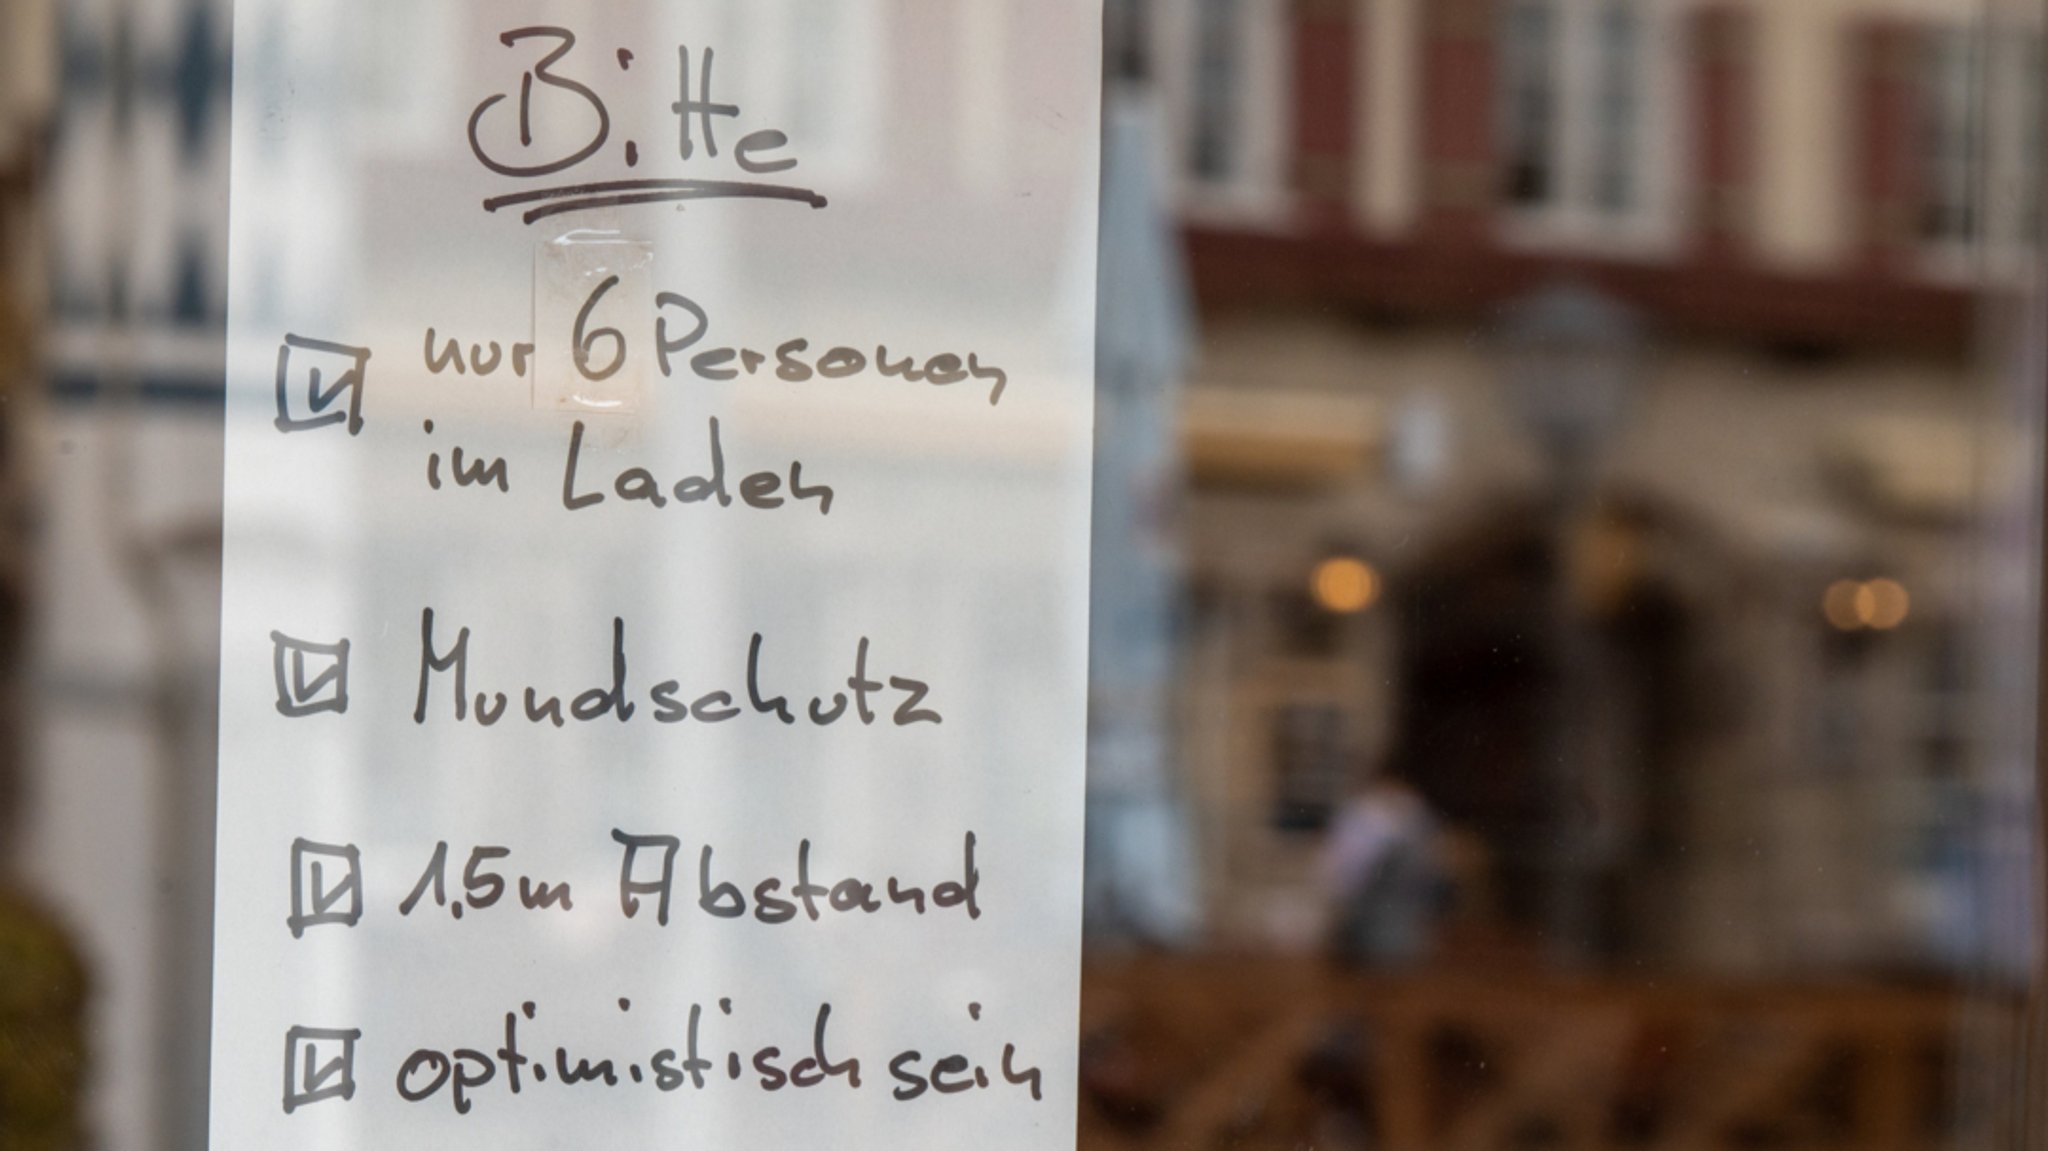 Bitte
☑ nur 6 Personen
im Laden
☑ Mundschutz
☑ 1,5m Abstand
☑ optimistisch sein